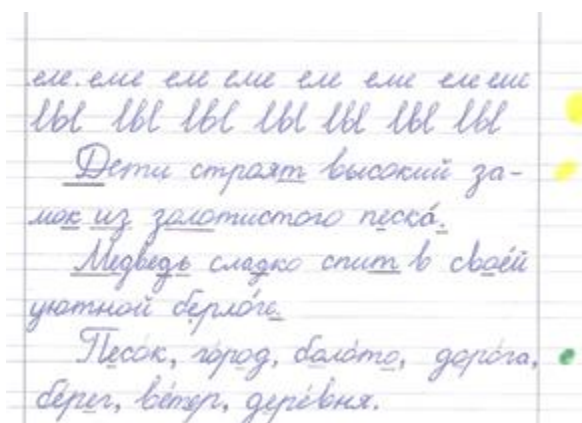 еле. еле еле еле еле еле елееле
lbl lbl lbl lbl lbl lbl lbl
Дети строят высокий за-
мок из золотистого песка́.
Медведь сладко спит в свое́й
уютной берло́ге.
Песо́к, го́род, боло́то, доро́га,
бе́рег, ве́тер, дере́вня.